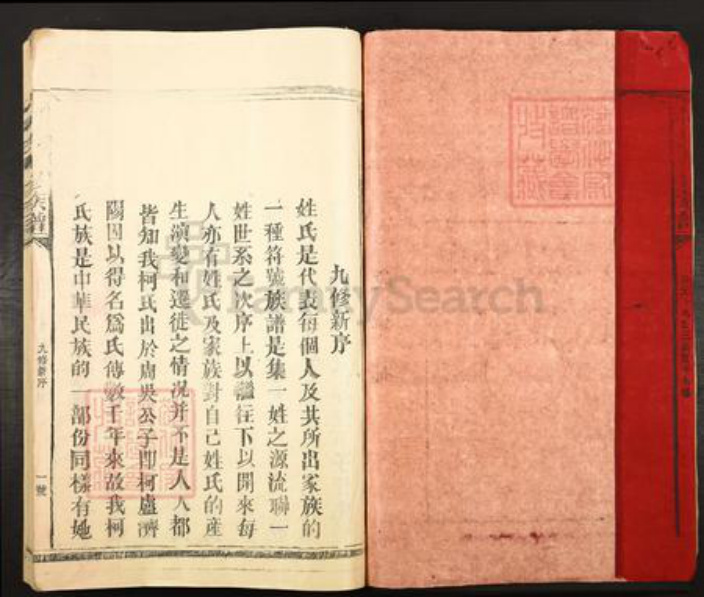 九修新序
姓氏是代表每個人及其所出家族的
一種符號族譜是集一姓之源流聯一
姓世系之次序上以繼往下以開來每
人亦有姓氏及家族對自己姓氏的產
生演變和遷徙之情况并不是人人都
皆知我柯氏出於周吳公子即柯盧濟
陽因以得名爲氏傳數千年來故我柯
氏族是中華民族的一部份同樣有她
族譜
九修新序
一號
FamilySearch